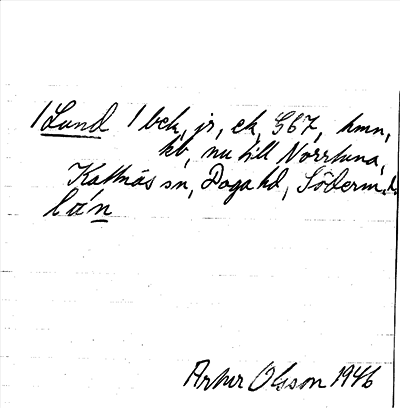 /Lund / bek, jr, ek, G67, hmn,
kv, nu till Norrtuna,
Kattnäs sn, Daga hd, Söderm.l.
län
Artur Olsson 1946